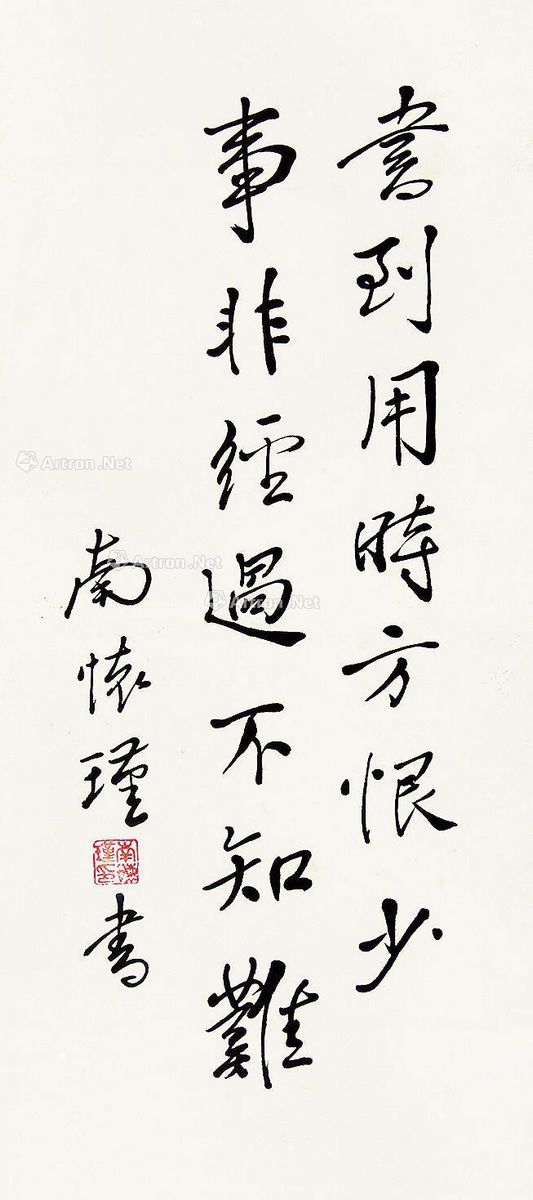 書到用時方恨少
事非經過不知難
南懷瑾書
南懷瑾印
Artron.Net
Artron.Net
Artron.Net